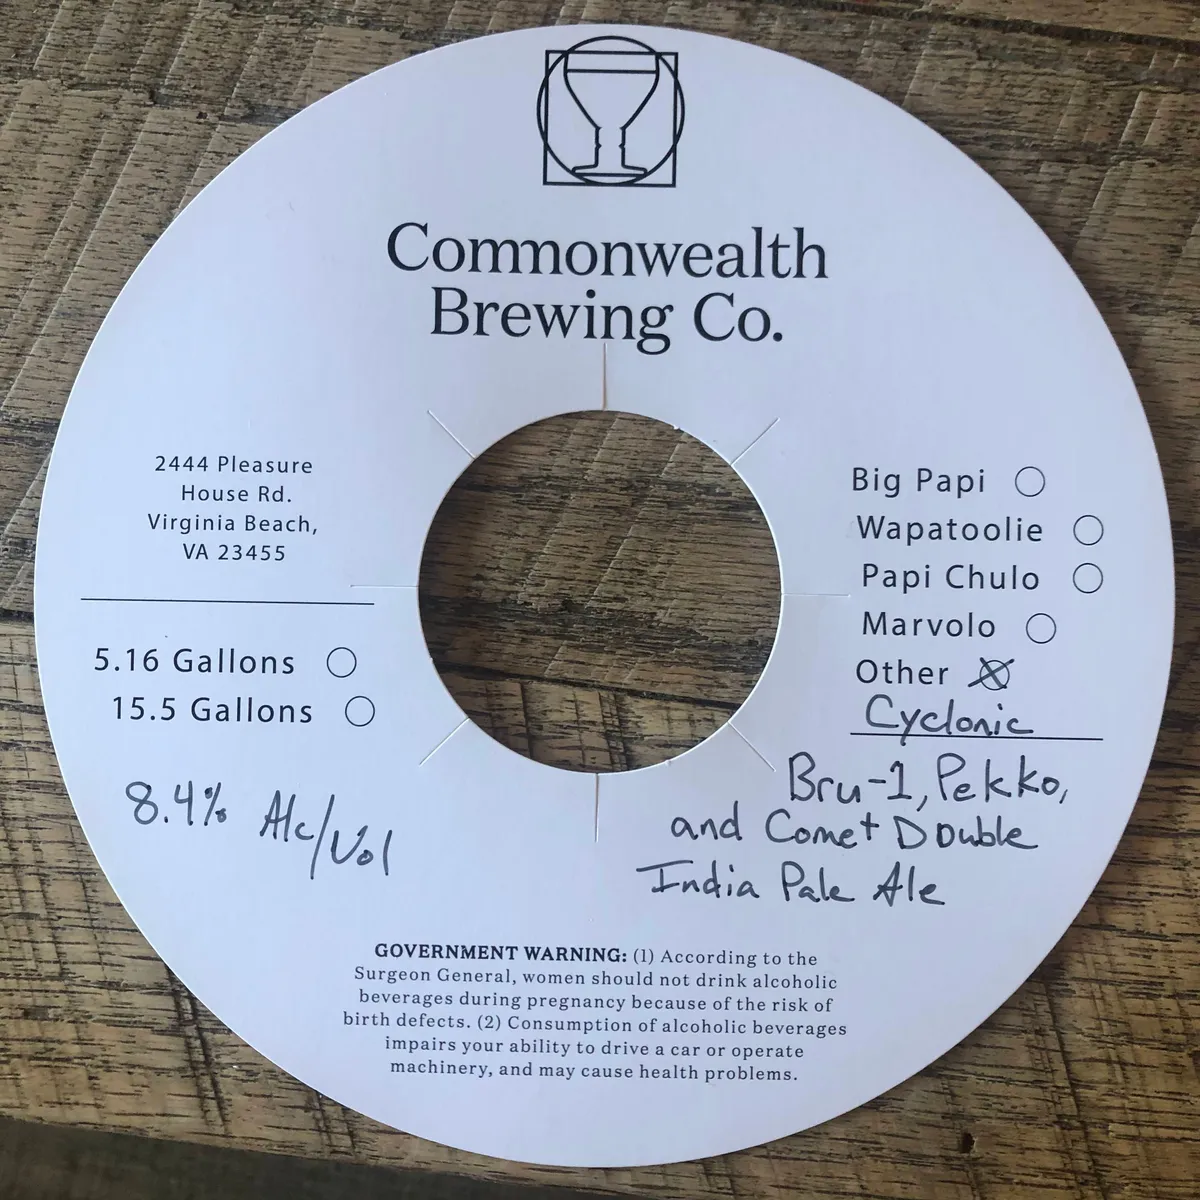 Commonwealth
Brewing Co.
2444 Pleasure
House Rd.
Virginia Beach,
VA 23455
5.16 Gallons
15.5 Gallons
8.4% Alc/Vol
Big Papi
Wapatoolie
Papi Chulo
Marvolo
Other
Cyclonic
Bru-1, Pekko,
and Comet Double
India Pale Ale
GOVERNMENT WARNING: (1) According to the
Surgeon General, women should not drink alcoholic
beverages during pregnancy because of the risk of
birth defects. (2) Consumption of alcoholic beverages
impairs your ability to drive a car or operate
machinery, and may cause health problems.